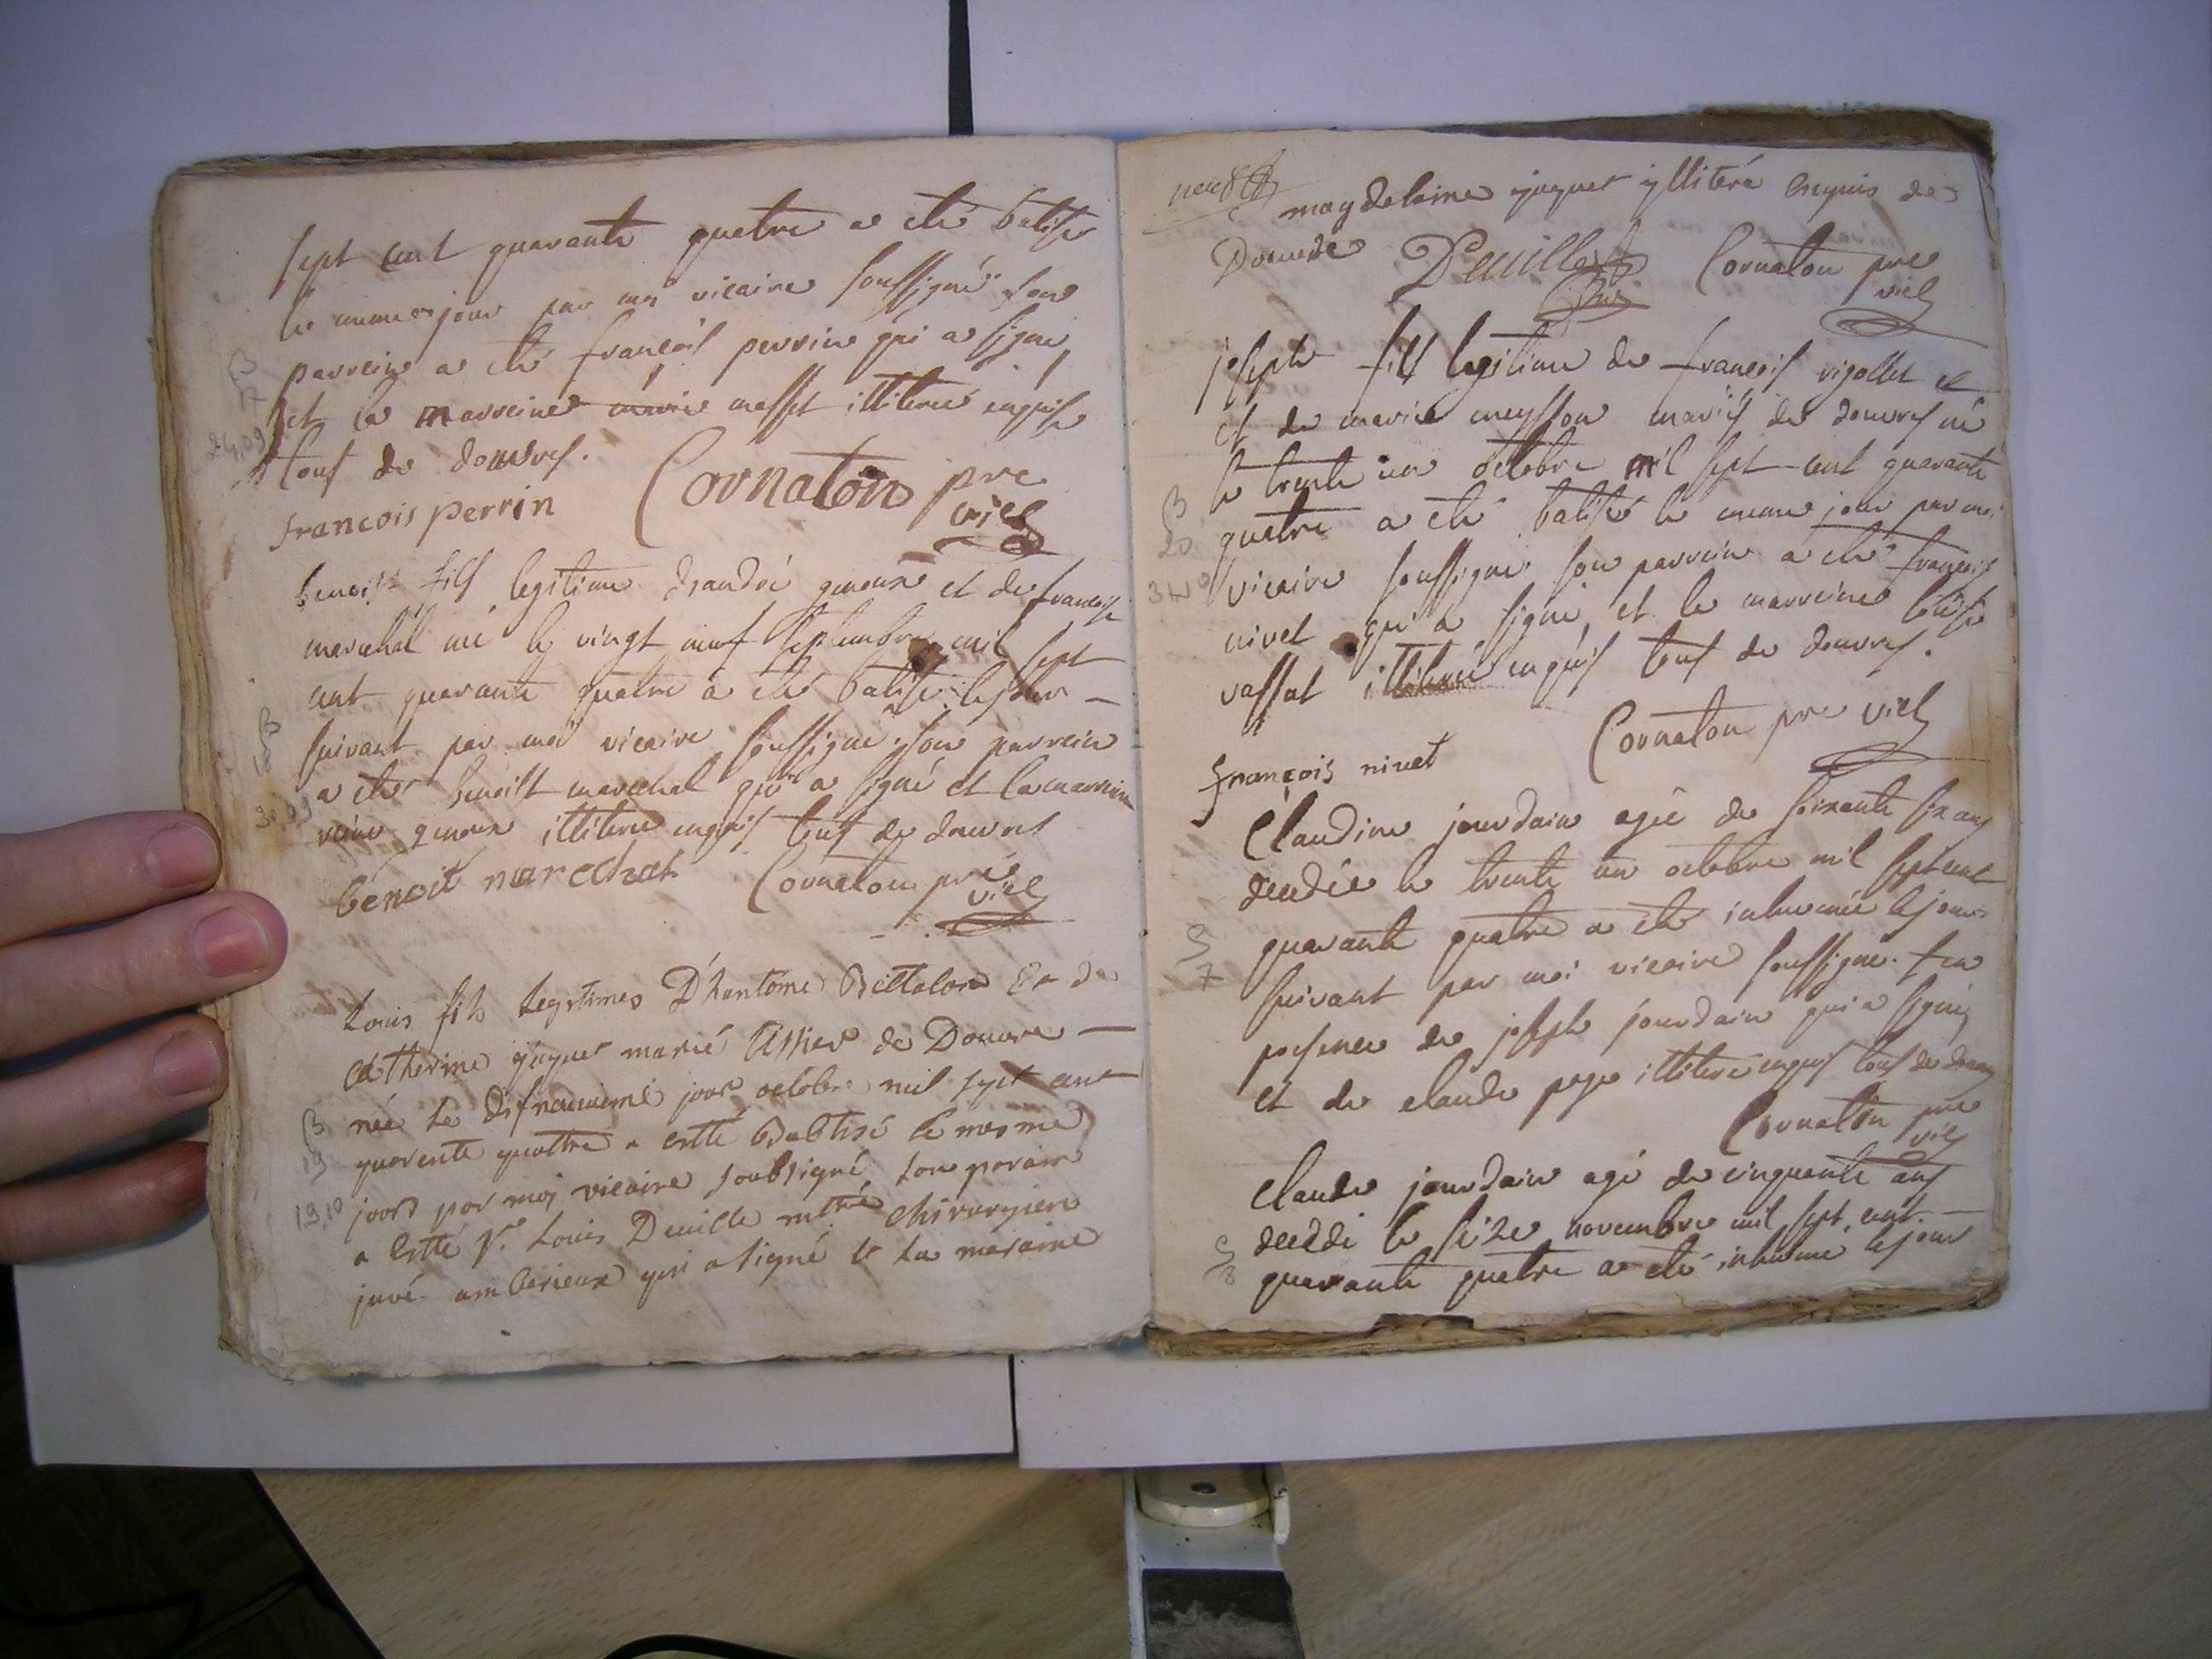 sept cent quarante quatre a eté batisé
le meme jour par moi vicaire soussigné son
parrein a eté françois perrin qui a signé
et la marreine marie masset illiterée enquise
tous de douvres.
francois perrin Cornaton pre
vicl
benoist fils legitime d'andré gueux et de francoise
marechal né le vingt neuf septembre mil sept
cent quarante quatre a eté batisé le jour
suivant par moi vicaire soussigné son parrein
a eté benoist marechal qui a signé et la marreine
illiteré enquis tous de douvres
benoit marechal Cornaton pre
vicl
Louis fils Legitimes D'hantoine Billalon Et de
Catherine jaquet marié de Douvre
née le disneuviemé jour octobre mil sept cent
quarente quattre a estté Babtisé le mesme
jour par moy vicaire soubsigné son parain
a estté Sr. Louis Deuille mtre chirurgien
juré amberieux qui a signé et La maraine
B
17
24,09
B
18
30,09
B
19
19,10
neuf
magdelaine jaquet ylliterá Enquis de
Douvre Deuille Cornaton pre
viel
joseph fils legitime de françois rigollet et
et de marie meysson mariés de douvres né
le trente un octobre mil sept cent quarante
quatre a eté batisé le meme jour par moi
vicaire soussigné son parrein a eté françois
nivet qui a signé, et la marreine
vassat illiteré enquis tous de douvres.
Cornaton pre viel
françois nivet
Claudine jourdain agée de soixante six ans
decedée le trente un octobre mil sept cent
quarante quatre a eté inhumée le jour
suivant par moi vicaire soussigné. En
presence de joseph jourdain qui a signé
et de claude page illiteré enquis tous de douvres
Cornaton pre
viel
Claude jourdain agé de cinquante ans
decedé le seize novembre mil sept cent
quarante quatre a eté inhumé le jour
B
20
31,10
S
7
S
8